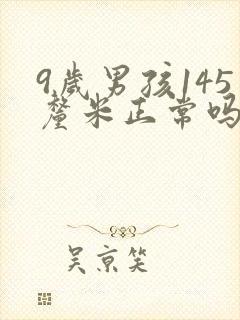 9歲男孩145
釐米正常吗
吴京笑